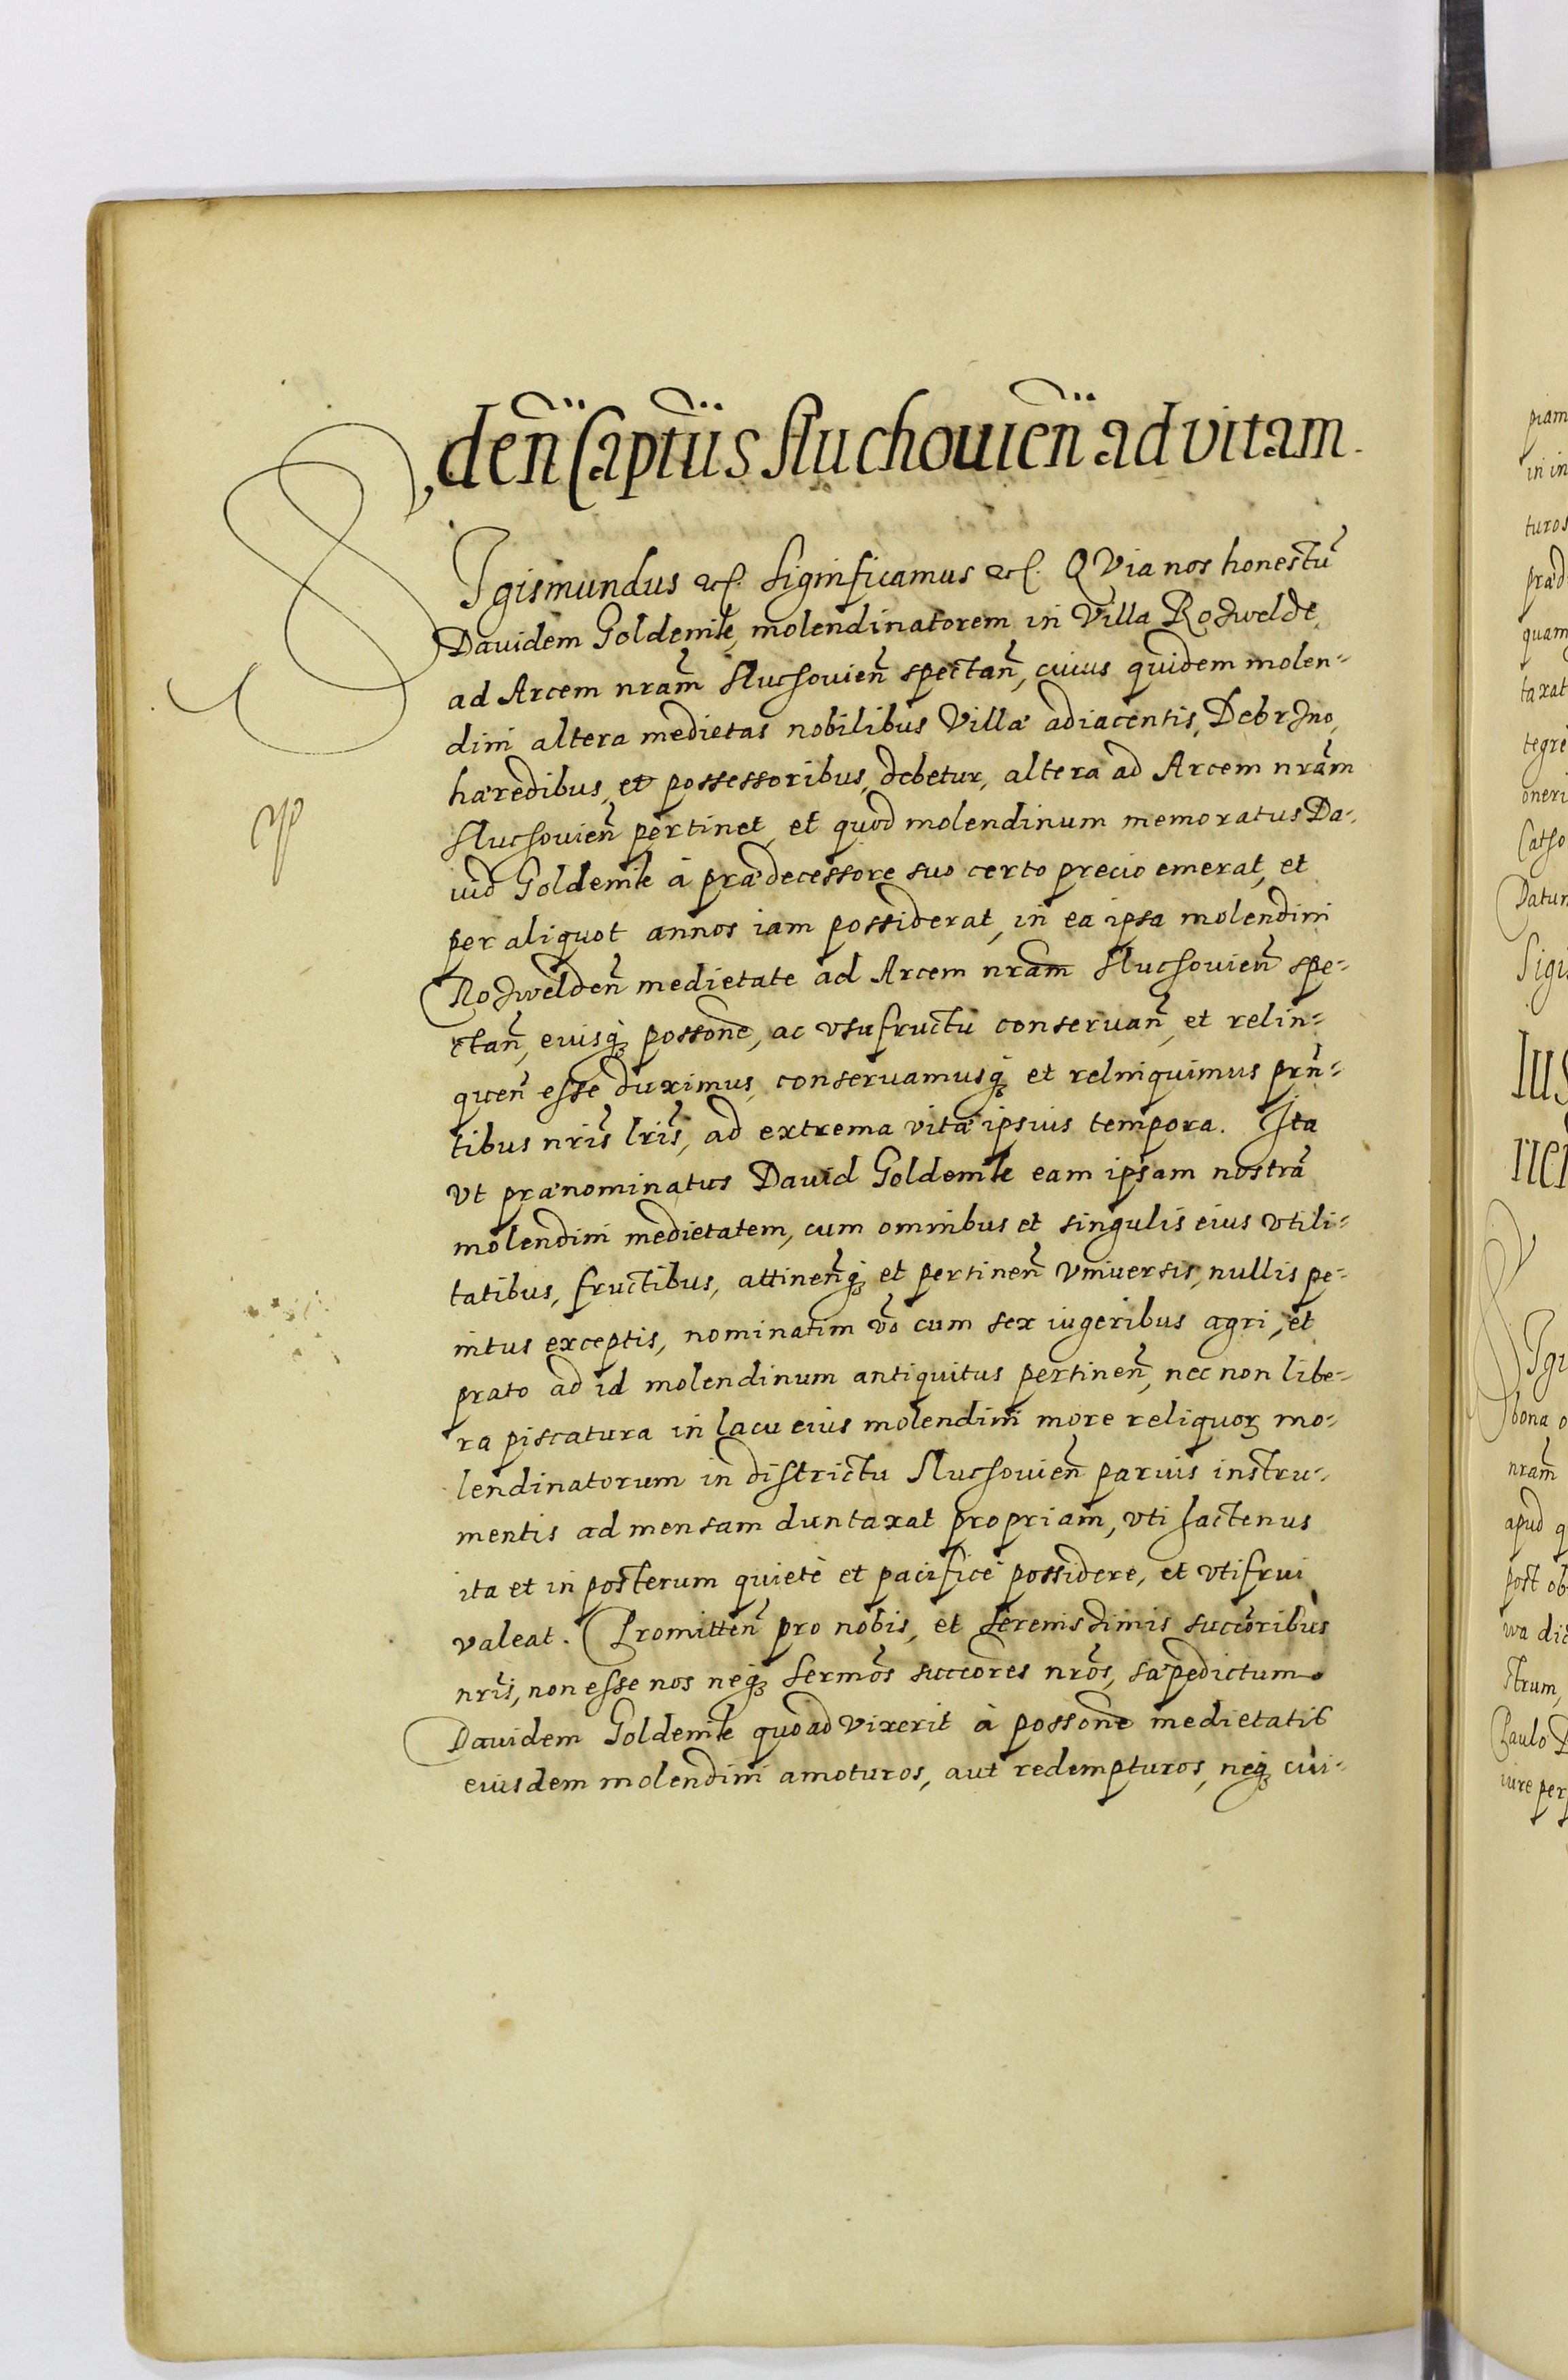 den̄ Capt̄iis Sluchouien̄ ad vitam.
SIgismundus ꝛc. Significamus ꝛc. QVia nos honestū
Dauidem Goldemle, molendinatorem in Villa Rozwelde,
ad Arcem nram̄ Sluchouien̄ spectan̄, cuius quidem molen-
dini altera medietas nobilibus Villæ adiacentis, Debrzno,
hæredibus, et possessoribus, debetur, altera ad Arcem nram̄
Sluchouien̄ pertinet, et quod molendinum memoratus Da-
uid Goldemle à prædecessore suo certo precio emerat, et
per aliquot annos iam possiderat, in ea ipsa molendini
Rozwelden̄ medietate ad Arcem nram̄ Sluchouien̄ spe-
ctan̄, eiusqꝫ posson̄e, ac vsufructu conseruan̄, et relin-
quen̄ esse duximus, conseruamusqꝫ et relinquimus prn̄-
tibus nrīs lrīs, ad extrema vitæ ipsius tempora. Ita
vt prænominatus Dauid Goldemle eam ipsam nostrā
molendini medietatem, cum omnibus et singulis eius vtili-
tatibus, fructibus, attinen̄qꝫ et pertinen̄ vniuersis, nullis pe-
nitus exceptis, nominatim vō cum sex iugeribus agri, et
prato ad id molendinum antiquitus pertinen̄, nec non libe-
ra piscatura in lacu eius molendini more reliquoꝝ mo-
lendinatorum in districtu Sluchouien̄ paruis instru-
mentis ad mensam duntaxat propriam, vti hactenus
ita et in posterum quietè et pacificè possidere, et vtifrui
valeat. Promitten̄ pro nobis, et Serenissimis succōribus
nrīs, non esse nos neqꝫ Sermōs succōres nrōs, sæpedictum
Dauidem Goldemle quoad vixerit à posson̄e medietatis
eiusdem molendini amoturos, aut redempturos, neqꝫ cui-